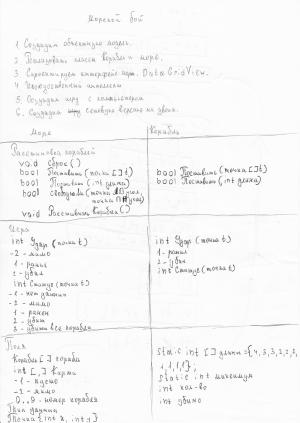 Морской бой
1. Создадим объектную модель.
2. Реализовать классы Корабль и море.
3. Спроектируем интерфейс игр. DataGridView.
4 Искусственный интеллект
5. Создадим игру с компьютером
6. Создадим сетевую версию на двоих.
Море
Корабль
Расстановка кораблей
void Сброс()
bool Поставить (точка []t)
bool Поставить (int длина)
bool Свободна (точка
void Расставить Корабли()
bool Поставить (точка []t)
bool Поставить (int длина)
Игра
int Удар (точка t)
-2 - мимо
1 - ранил
2 - убил
int Статус (точка t)
-2 - мимо
1 - ранен
2 - убит
3 - убиты все корабли
int Удар (точка t)
1 - ранил
2 - убил
int Статус (точка t)
Поля
Корабль [] корабли
int [,] Карта
-2 - мимо
0..9 - номер корабля
Точка {int x, int y}
static int [] длины = {4,3,3,2,2,2,
1,1,1,1};
static int максимум
int кол-во
int убито